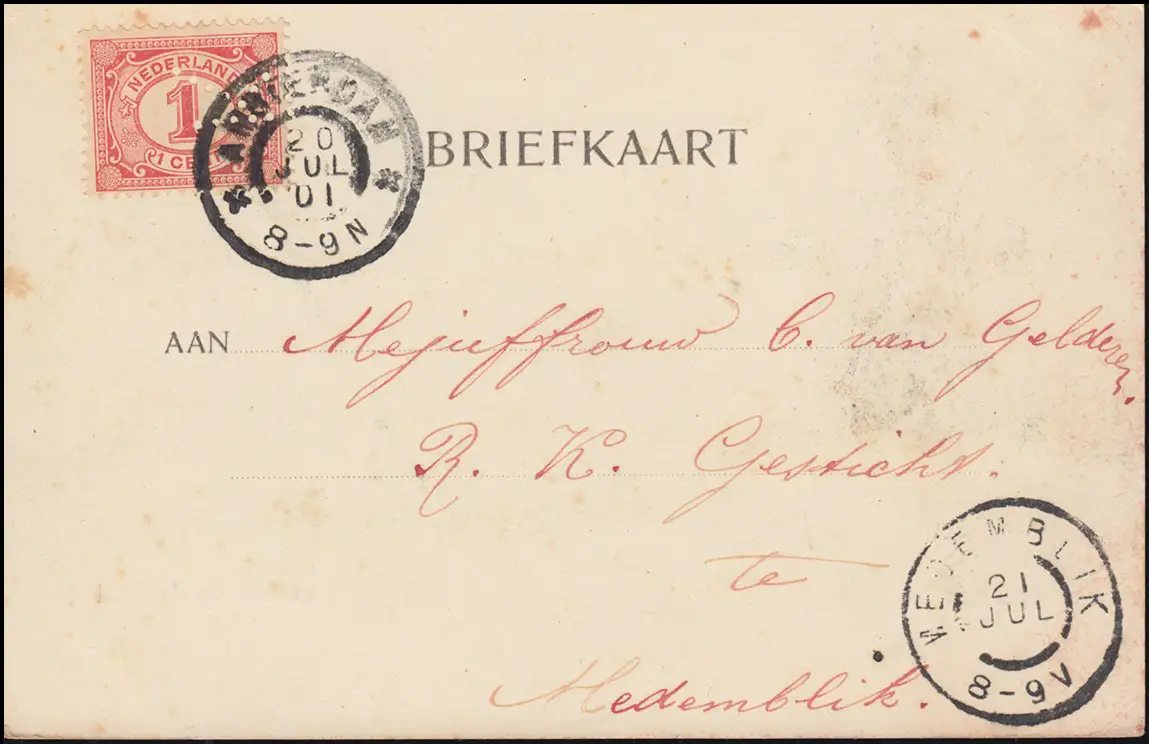 NEDERLAND
1
1 CE
AMSTERDAM
20
JUL
01
8-9 N
BRIEFKAART
AAN Mejuffrouw C. van Gelderen.
R. K. Gesticht.
te
Medemblik.
MEDEMBLIK
21
JUL
8-9 V